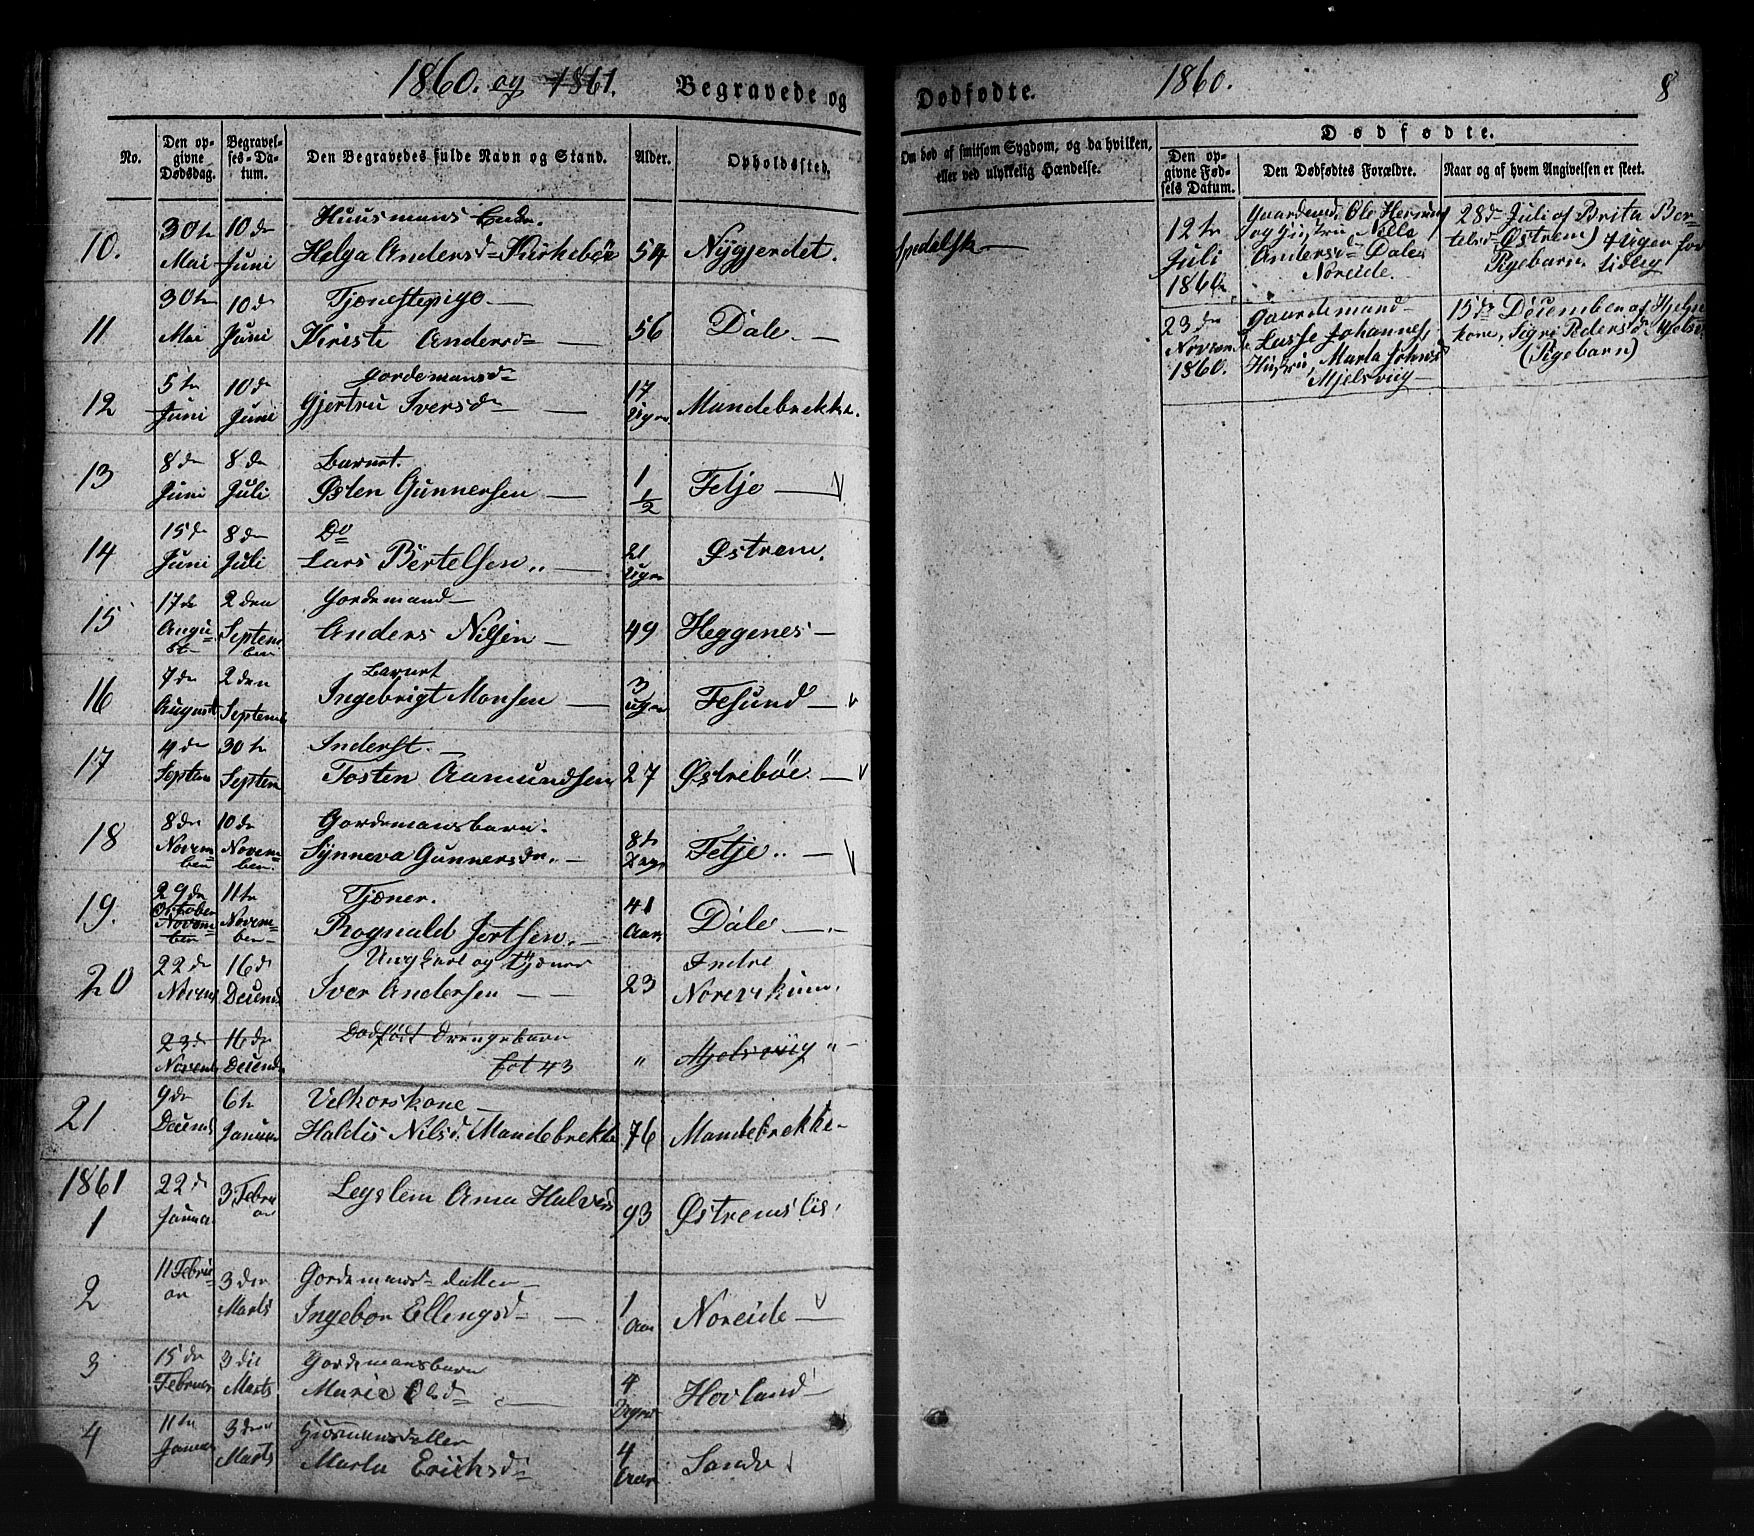 1860. og 1861. Begravede og
No. Den opgivne Dødsdag. Begravelses-Datum. Den Begravedes fulde Navn og Stand. Alder. Opholdssted.
10. 30te Mai 10de Juni Huusmans Enke. Helga Andersd. Kirkebøe 54 Nygjerdet.
11 30te Mai 10de Juni Tjænestepige Kiristi Andersd 56 Dale
12 5te Juni 10de Juni Gordemansd Gjertru Iversd 17 Uger Mandebrekke.
13 8de Juni 8de Juli Barnet. Østen Gunnersen 1 1/2 Fetje
14 15de Juni 8de Juli Do Lars Bertelsen 21 Uger Østrem.
15 17de August 2den September Gordemand Anders Nilsen 49 Heggenes
16 7de August 2den Septem Barnet Ingebrigt Monsen 3 uger Fesund
17 4de Septem 30te Septem Inderst. Tosten Aamundsen 27 Østrebøe
18 8de November 10de November Gordemansbarn. Synneva Gunnersdr. 8te Dage Fetje
19. 29de October November 11te November Tjæner. Rognald Jortsen. 41 Aar Dale
20 22de Novem 16de Decemb Ungkarl og Tjæner Iver Andersen 23 Indre Norevikum.
23de Novem 16de Decemb Dødfødt Drengebarn fol 43 " Mjelsvüg "
21 9de Decemb 6te Januar Velkorskone Haldis Nilsd. Mandebrekke 76 Mandebrekke
1861
1 22de Janua 3 Februar Legslem Anna Halvesd 93 Østremslie
2 11 Februar 3die Marts Gordemandsdatter Ingebor Ellengsd 1 Aar Noreide
3 15de Februar 3die Marts Gordemansbarn Marie Olsd 4 Dage Hovland
4 11te Januar 3die Marts Husmansdatter Marta Erichsd 4 Aar Sande
Dødfødte. 1860. 8
Om død af smitsom Sygdom, og da hvilken, eller ved ulykkelig Hændelse.
Dødfødte.
Den opgivne Fødsels Datum. Den Dødfødtes Forældre. Naar og af hvem Angivelsen er skeet.
Spedalsk
12te Juli 1860. Gaardmand Ole Hermunds og Hustru Nille Andersd. Dale Noreide. 28de Juli af Brita Bertelsd. Østrem) 4 uger for tidlig Pigebarn.
23de Novem 1860. Gaardemand Lasse Johannes Hustru, Marta Johnsd Mjelsviig 15de December af Hjelpekone, Sigri Pedersd. Mjelsv (Pigebarn)